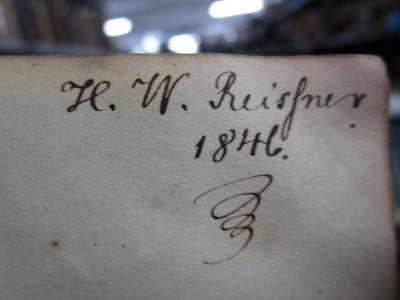 H. W. Reissner
1846.